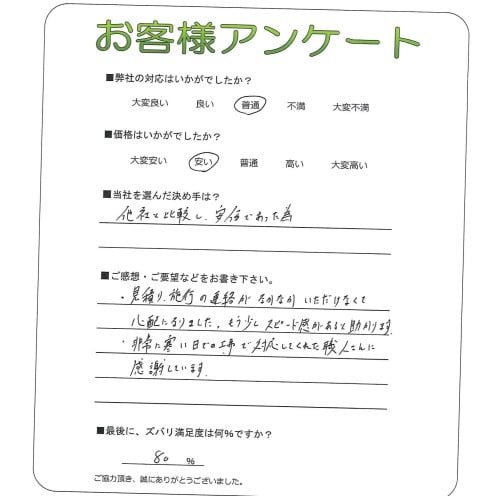 お客様アンケート
■弊社の対応はいかがでしたか?
大変良い 良い 普通 不満 大変不満
■価格はいかがでしたか?
大変安い 安い 普通 高い 大変高い
■当社を選んだ決め手は?
他社と比較し、安価であった為
■ご感想・ご要望などをお書き下さい。
・見積り、施行の連絡がなかなかいただけなくて
心配になりました。もう少しスピード感があると助かります。
・非常に寒い日での工事で対応してくれた職人さんに
感謝しています。
■最後に、ズバリ満足度は何%ですか?
80 %
ご協力頂き、誠にありがとうございました。